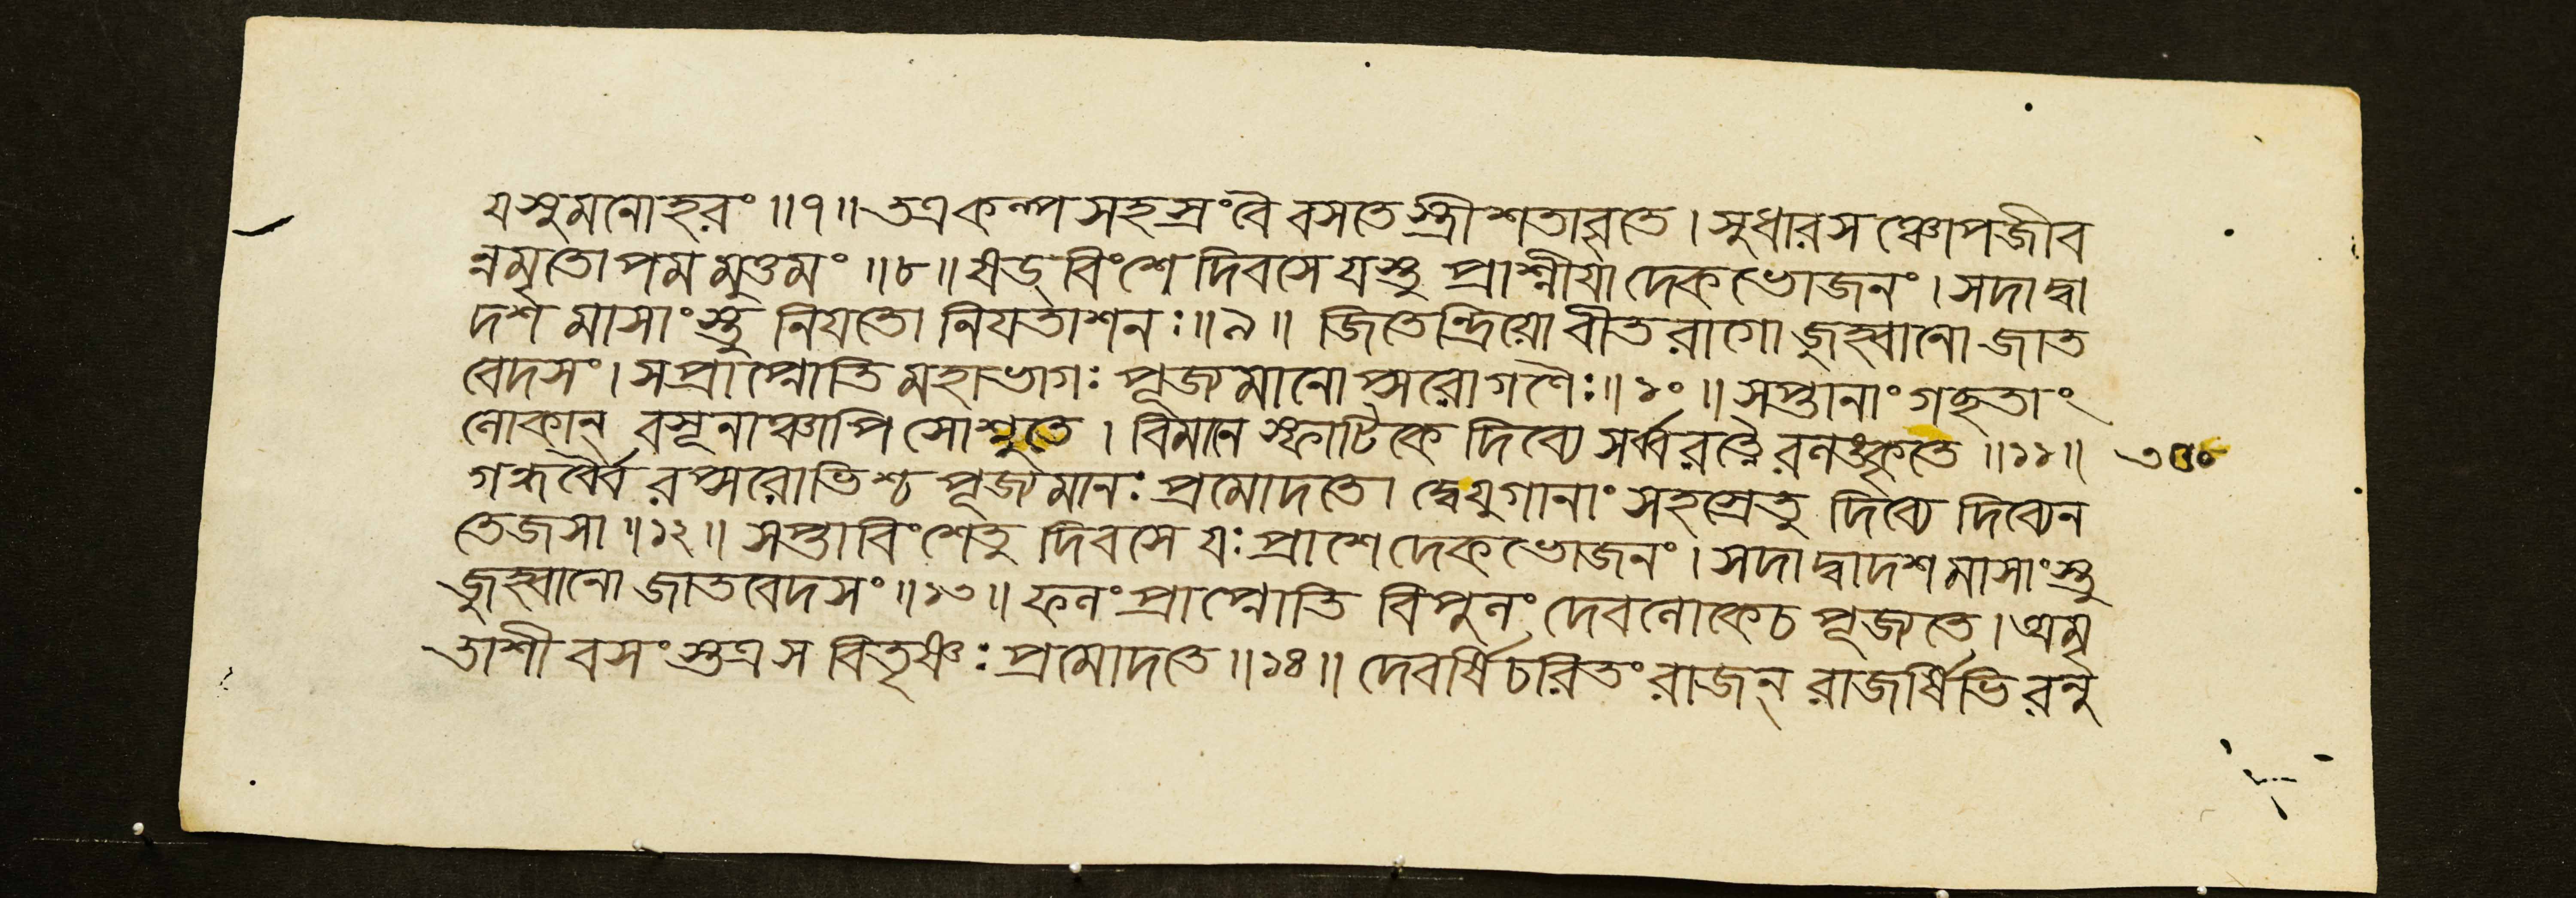 যস্তুমনোহরং ॥৭॥ তত্রকল্পসহস্রংবৈ বসতেস্ত্রীশতাবৃতে । সুধারসঞ্চোপজীব
ন্নমৃতোপমমুত্তমং ॥৮॥ ষড্বিংশেদিবসেযস্তু প্রাশ্নীয়াদেকভোজনং । সদাদ্বা
দশ মাসাংস্তু নিয়তো নিয়তাশনঃ ॥৯॥ জিতেন্দ্রিয়োবীতরাগো জুহ্বানো জাত
বেদসং । সপ্রাপ্নোতি মহাভাগঃ পূজ্যমানোপ্সরোগণৈঃ ॥১০॥ সপ্তানাং মরুতাং
লোকান্ বসূনাঞ্চাপি সোশ্নুতে । বিমানে স্ফাটিকে দিব্যে সর্ব্বরত্নৈরলঙ্কৃতে ॥১১॥ ৩৫০
গন্ধর্বৈরপ্সরোভিশ্চ পূজ্যমানঃ প্রমোদতে । দ্বেযুগানাং সহস্রেতু দিব্যে দিব্যেন
তেজসা ॥১২॥ সপ্তাবিংশেতু দিবসে যঃ প্রাশেদেকভোজনং । সদাদ্বাদশমাসাংস্তু
জুহ্বানো জাতবেদসং ॥১৩॥ ফলং প্রাপ্নোতি বিপুলং দেবলোকেচ পূজ্যতে । অমৃ
তাশী বসংস্তত্র স বিতৃষ্ণঃ প্রমোদতে ॥১৪॥ দেবর্ষিচরিতং রাজন্ রাজর্ষিভিরনু